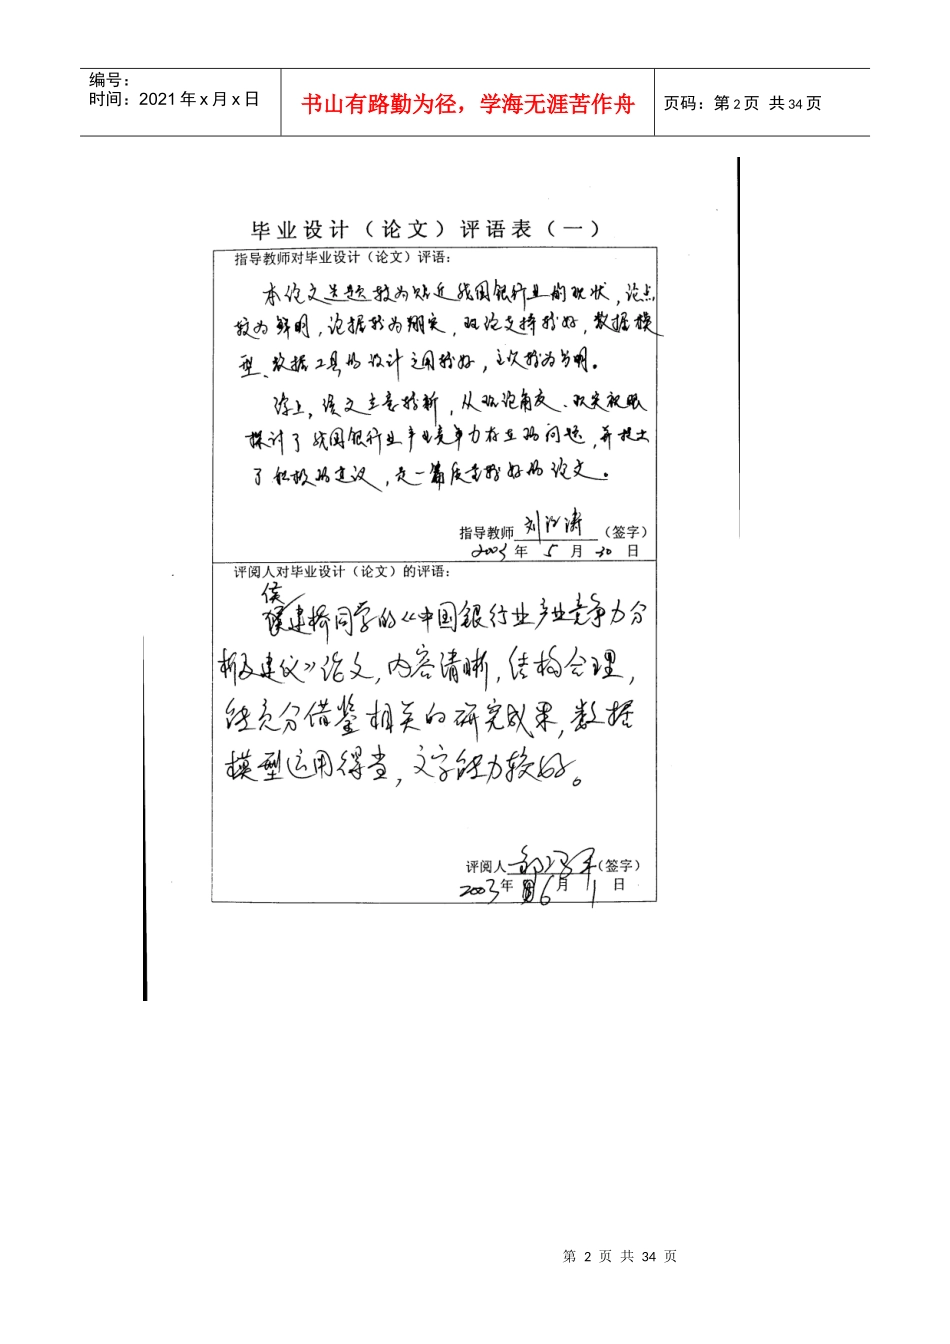 编号：
时间：2021年x月x日
书山有路勤为径，学海无涯苦作舟
页码：第2页 共34页
毕业设计（论文）评语表（一）
指导教师对毕业设计（论文）评语：
本论文选题较为贴近我国银行业的现状，论点
较为鲜明，论据较为翔实，理论支持较好，数据模
型、数据工具的设计运用较好，主次较为分明。
综上，该文立意较新，从理论角度、现实视眼
探讨了我国银行业产业竞争力存在的问题，并提出
了积极的建议，是一篇质量较好的论文。
指导教师 刘 涛 （签字）
2003年 5 月 30 日
评阅人对毕业设计（论文）的评语：
侯
建桥同学的《中国银行业产业竞争力分
析及建议》论文，内容清晰，结构合理，
能充分借鉴相关的研究成果，数据
模型运用得当，文字能力较好。
评阅人 （签字）
2003年 6月 1 日
第 2 页 共 34 页